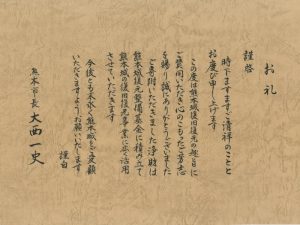 お礼
謹啓
時下ますますご清祥のことと
お慶び申し上げます
この度は熊本城復旧復元の趣旨に
ご賛同いただき心のこもったご芳志
を賜り誠にありがとうございました
ご寄附いただきました浄財は
熊本城復元整備基金に積み立て
熊本城の復旧復元事業に活用
させていただきます
今後とも末永く熊本城をご愛顧
いただきますようお願いいたします
謹白
熊本市長 大西一史